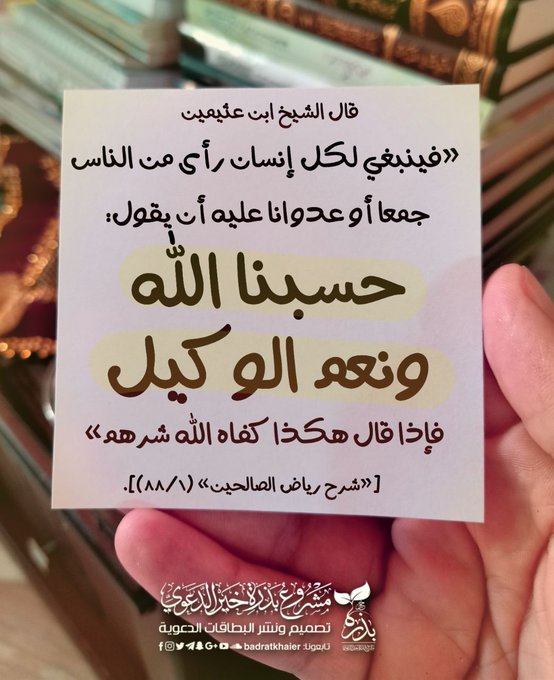 قال الشيخ ابن عثيمين
«فينبغي لكل إنسان رأى من الناس
جمعا أو عدوانا عليه أن يقول:
حسبنا الله
ونعم الوكيل
فإذا قال هكذا كفاه الله شرهم»
[«شرح رياض الصالحين» (٨٨/١)].
مشروع بذرة خير الدعوي
تصميم ونشر البطاقات الدعوية
تابعونا: badratkhaier
بذرة